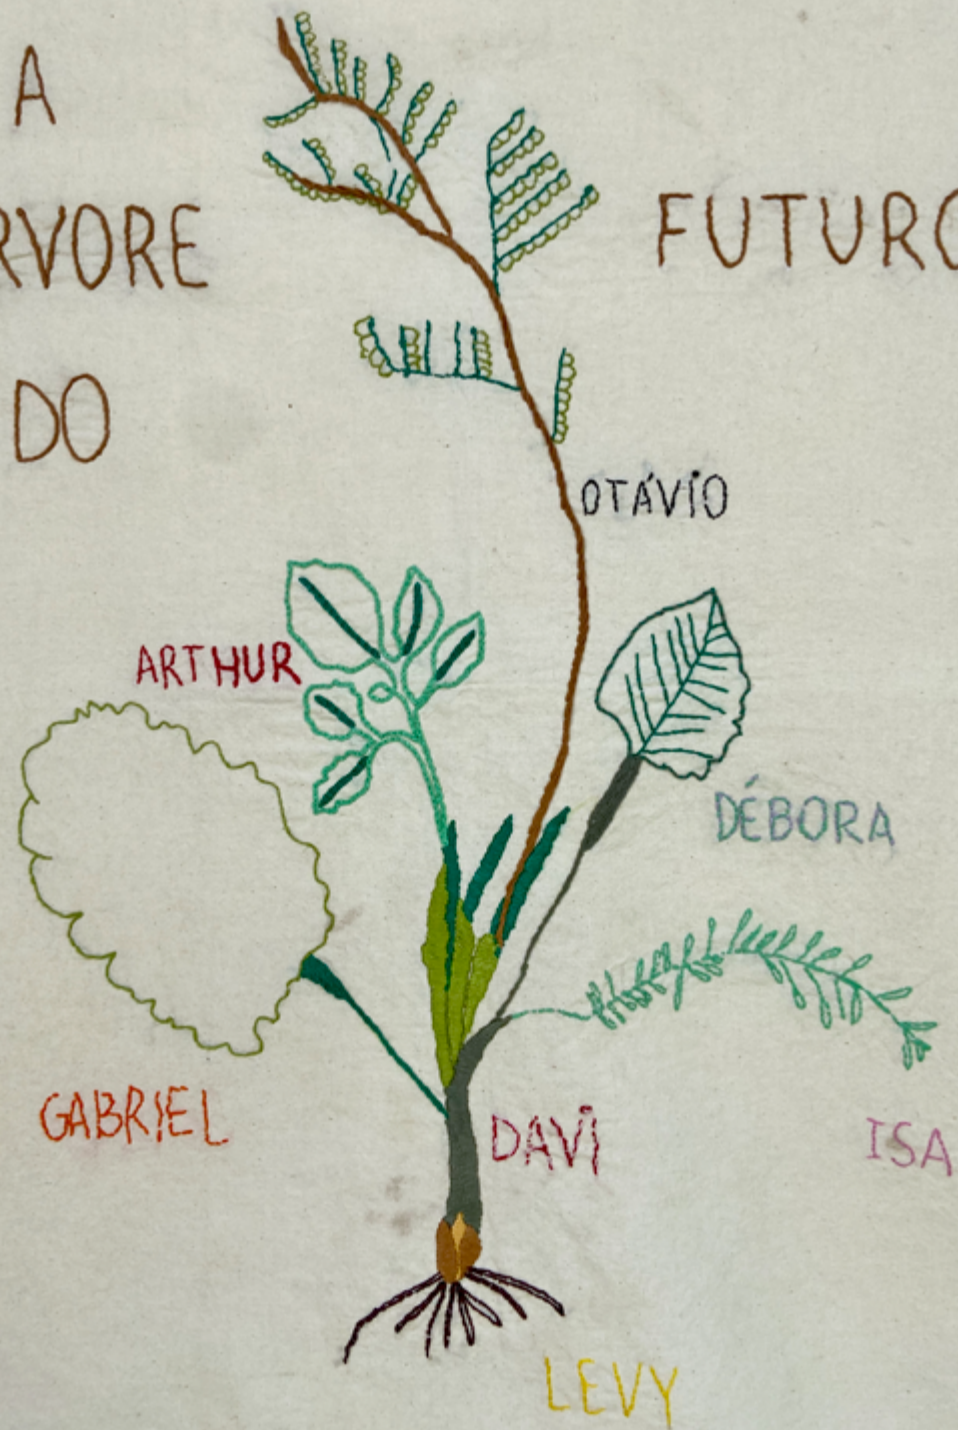 A
RVORE
FUTURO
DO
OTÁVIO
ARTHUR
DÉBORA
GABRIEL
DAVI
ISA
LEVY